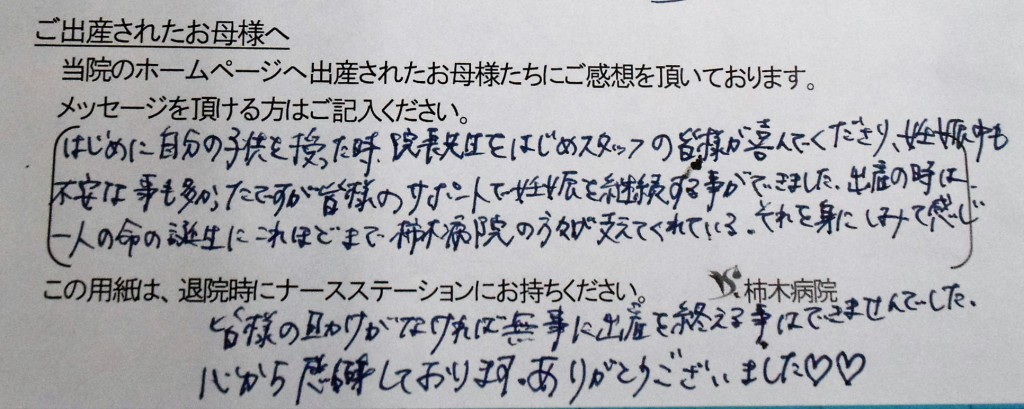 ご出産されたお母様へ
当院のホームページへ出産されたお母様たちにご感想を頂いております。
メッセージを頂ける方はご記入ください。
はじめに自分の子供を授った時、院長先生をはじめスタッフの皆様が喜んでくださり、妊娠中も
不安な事も多かったですが皆様のサポートで妊娠を継続する事ができました。出産の時は、
一人の命の誕生にこれほどまで柿木病院の方々が支えてくれている。それを身にしみて感じ
この用紙は、退院時にナースステーションにお持ちください。 柿木病院
皆様の助けがなければ無事に出産を終える事はできませんでした。
心から感謝しております。ありがとうございました♡♡